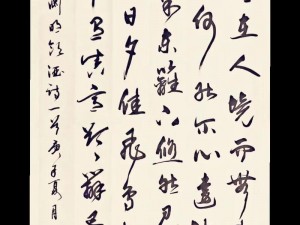 在人境而無
何能爾心遠地
東籬下悠然見
日夕佳飛鳥
有真意欲辨
淵明飲酒詩一首庚子夏月